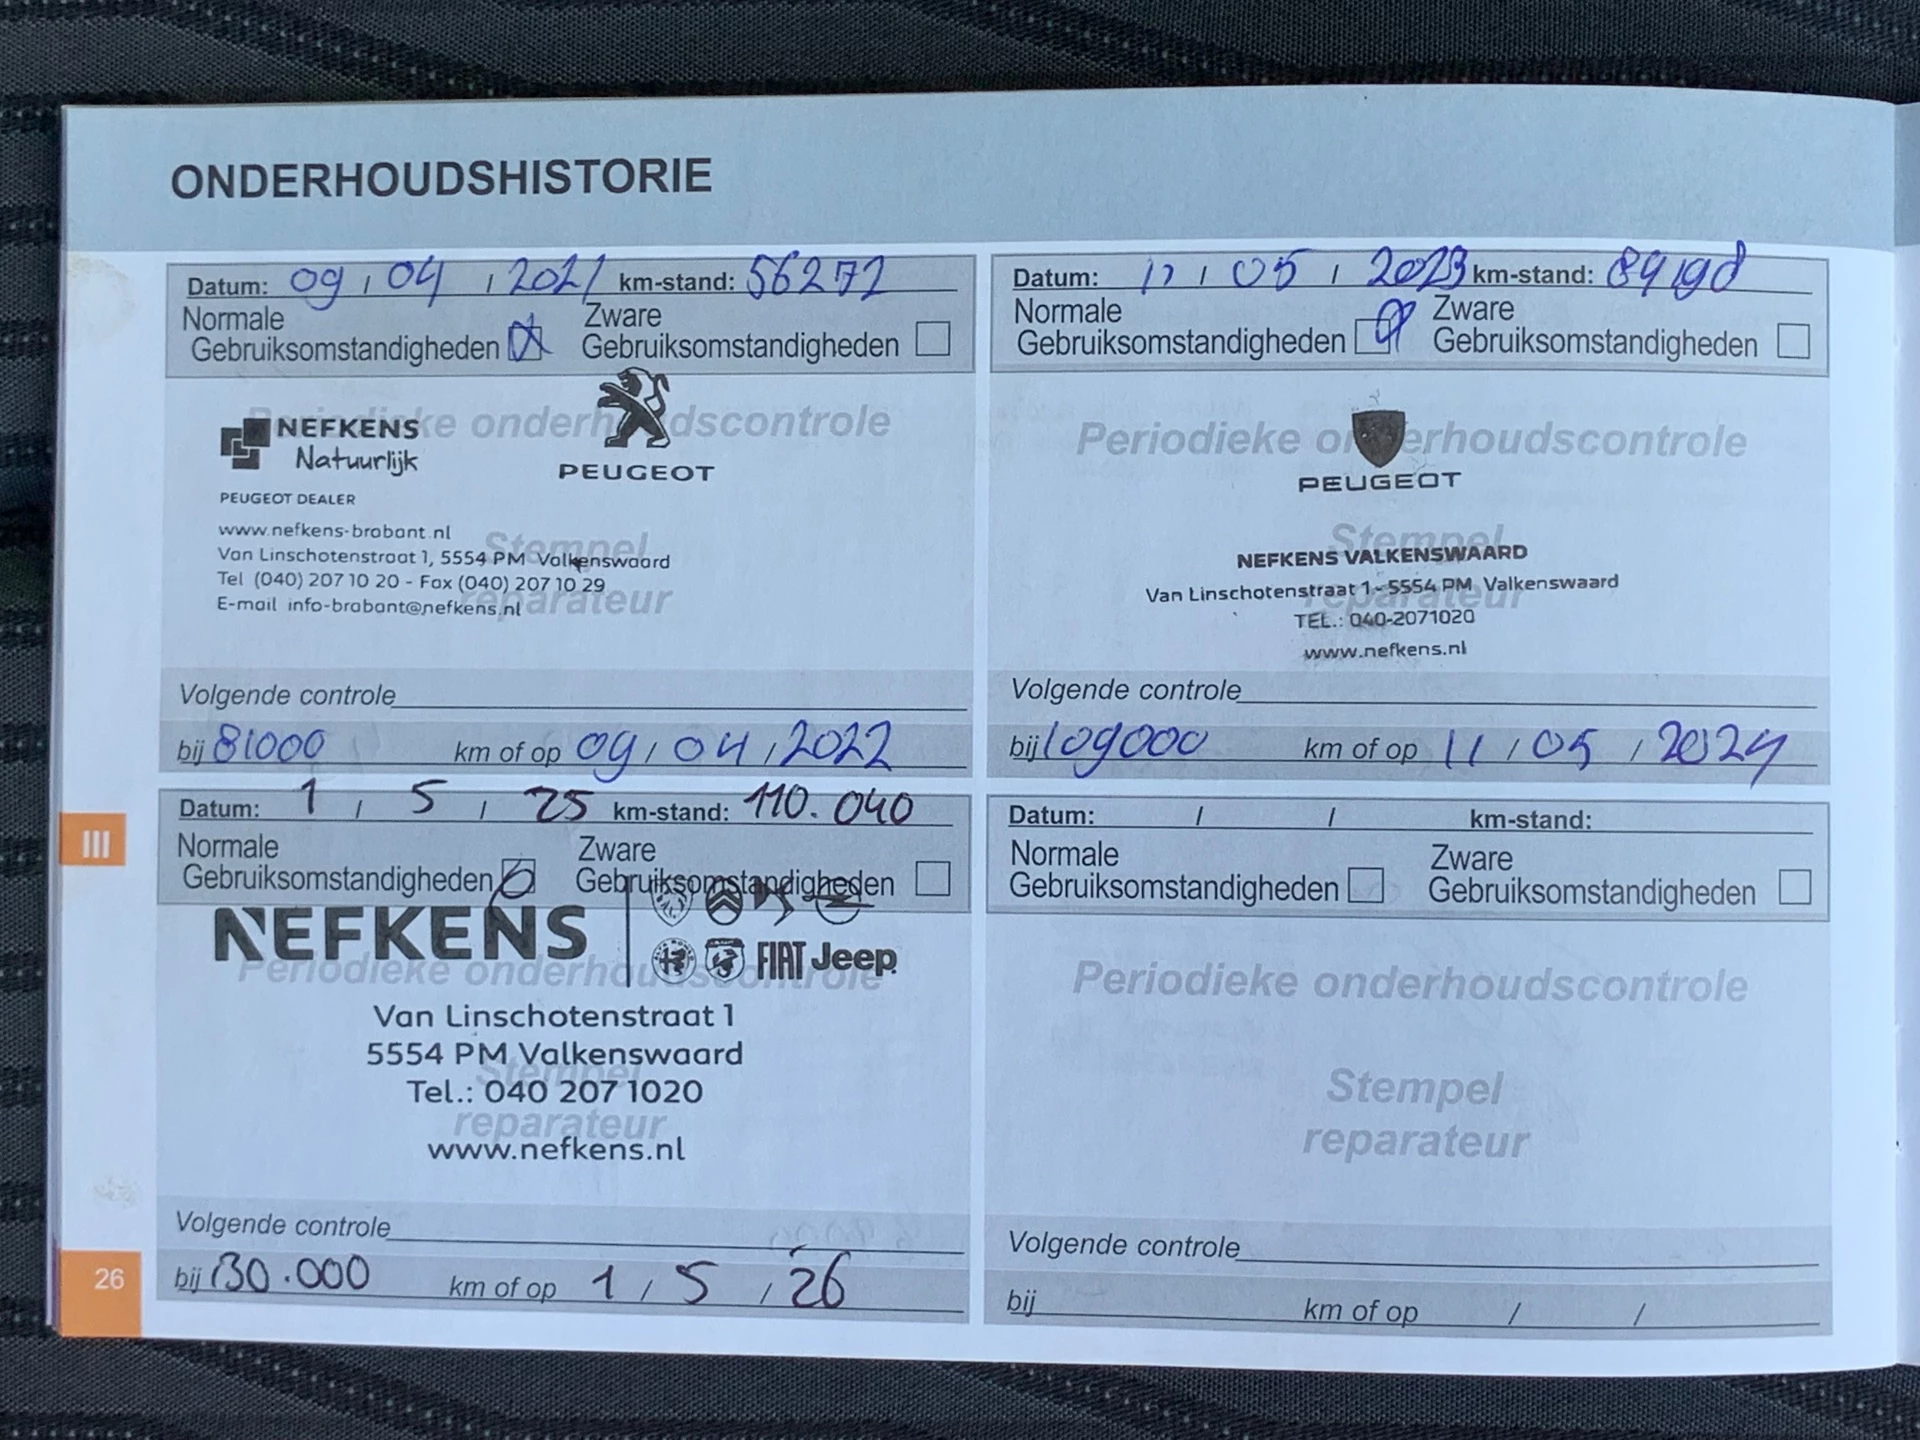 ONDERHOUDSHISTORIE
Datum: 09 / 04 / 2021 km-stand: 56272
Normale
Gebruiksomstandigheden
Zware
Gebruiksomstandigheden
Periodieke onderhoudscontrole
NEFKENS
Natuurlijk
PEUGEOT
PEUGEOT DEALER
www.nefkens-brabant.nl
Stempel
Van Linschotenstraat 1, 5554 PM Valkenswaard
Tel (040) 207 10 20 - Fax (040) 207 10 29
E-mail info-brabant@nefkens.nl
reparateur
Volgende controle
bij 81000 km of op 09 / 04 / 2022
Datum: 11 / 05 / 2023 km-stand: 89198
Normale
Gebruiksomstandigheden
Zware
Gebruiksomstandigheden
Periodieke onderhoudscontrole
PEUGEOT
Stempel
NEFKENS VALKENSWAARD
Van Linschotenstraat 1 - 5554 PM Valkenswaard
reparateur
TEL.: 040-2071020
www.nefkens.nl
Volgende controle
bij 109000 km of op 11 / 05 / 2024
III
Datum: 1 / 5 / 25 km-stand: 110.040
Normale
Gebruiksomstandigheden
Zware
Gebruiksomstandigheden
NEFKENS
FIAT Jeep
Periodieke onderhoudscontrole
Van Linschotenstraat 1
5554 PM Valkenswaard
Stempel
Tel.: 040 207 1020
reparateur
www.nefkens.nl
Volgende controle
bij 130.000 km of op 1 / 5 / 26
Datum: / / km-stand:
Normale
Gebruiksomstandigheden
Zware
Gebruiksomstandigheden
Periodieke onderhoudscontrole
Stempel
reparateur
Volgende controle
bij km of op / /
26